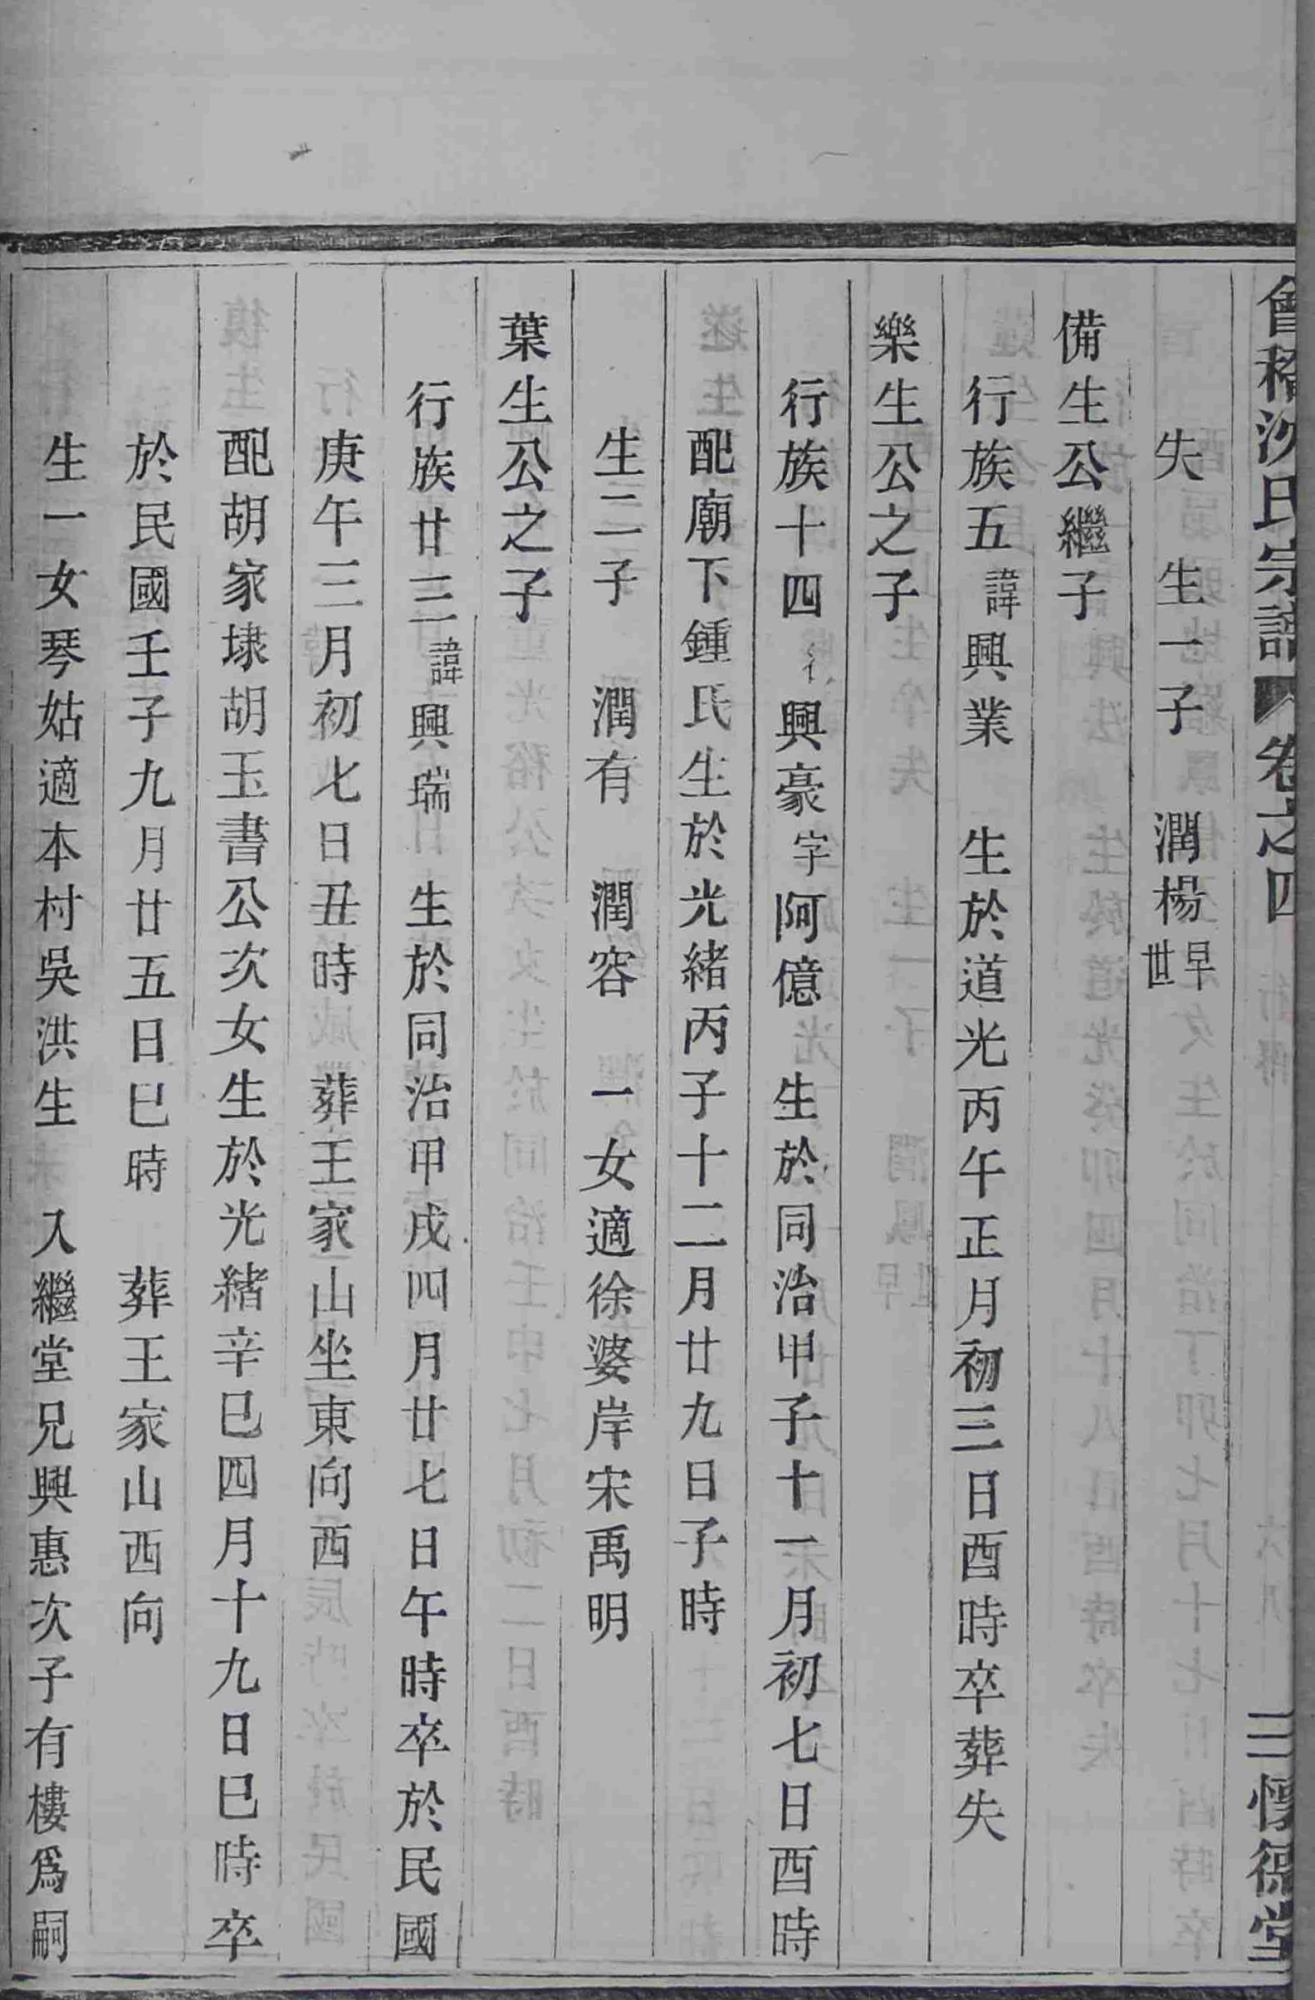 會稽沈氏宗譜 卷之四 三懷德堂
失 生一子 潤楊早世
備生公繼子
行族五諱興業 生於道光丙午正月初三日酉時卒葬失
樂生公之子
行族十四 興豪字阿億 生於同治甲子十一月初七日酉時
配廟下鍾氏生於光緒丙子十二月廿九日子時
生二子 潤有 潤容 一女適徐婆岸宋禹明
葉生公之子
行族廿三諱興瑞 生於同治甲戌四月廿七日午時卒於民國
庚午三月初七日丑時 葬王家山坐東向西
配胡家埭胡玉書公次女生於光緒辛巳四月十九日巳時卒
於民國壬子九月廿五日巳時 葬王家山西向
生一女琴姑適本村吳洪生 入繼堂兄興惠次子有樓為嗣